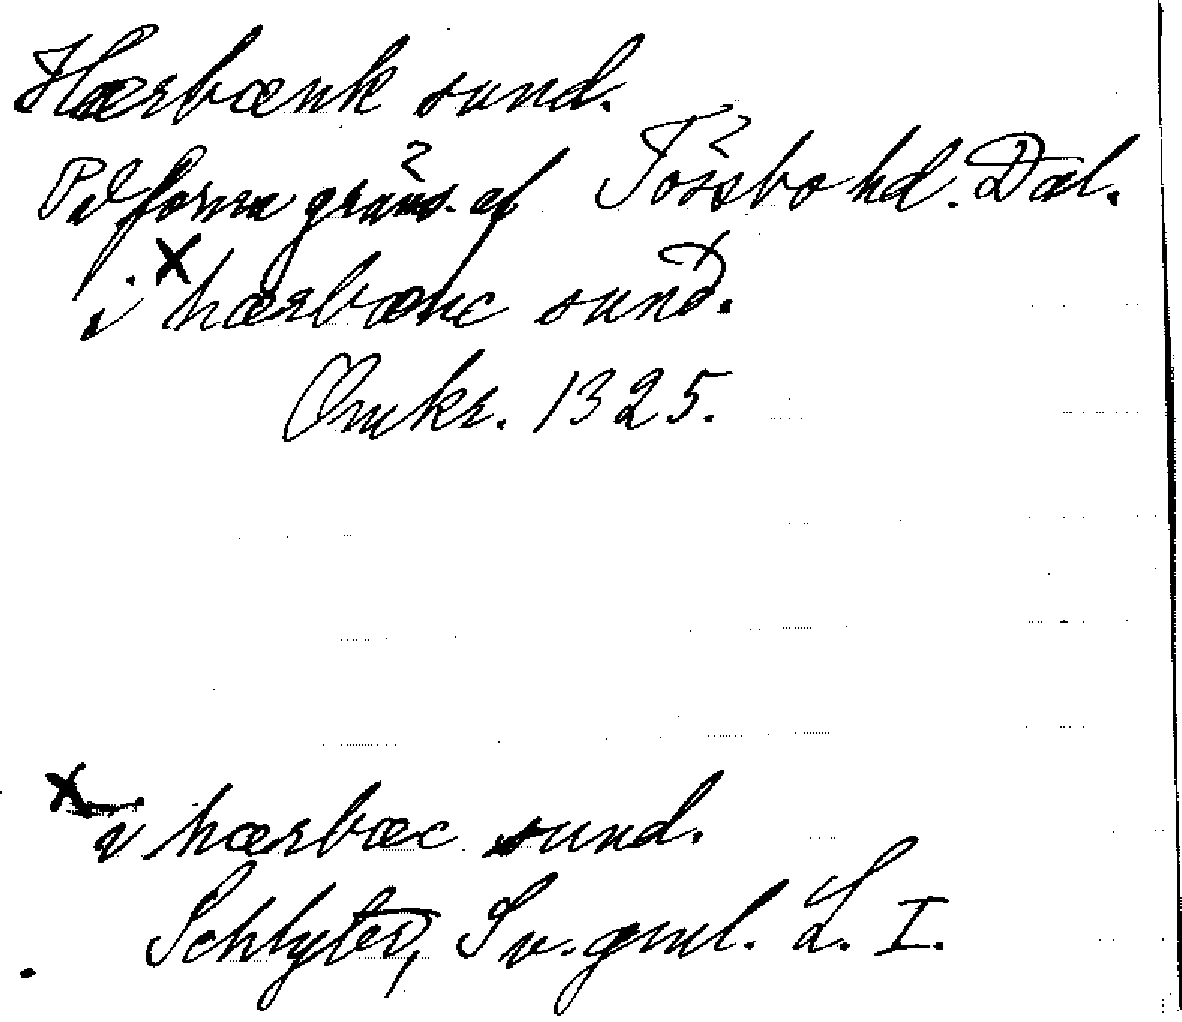 Hærbænk sund.
På forna gräns. af Tössbo hd. Dal.
i × hærbænc sund.
Omkr. 1325.
× i hærbæc sund.
Schlyter, Sv. gml. L. I.